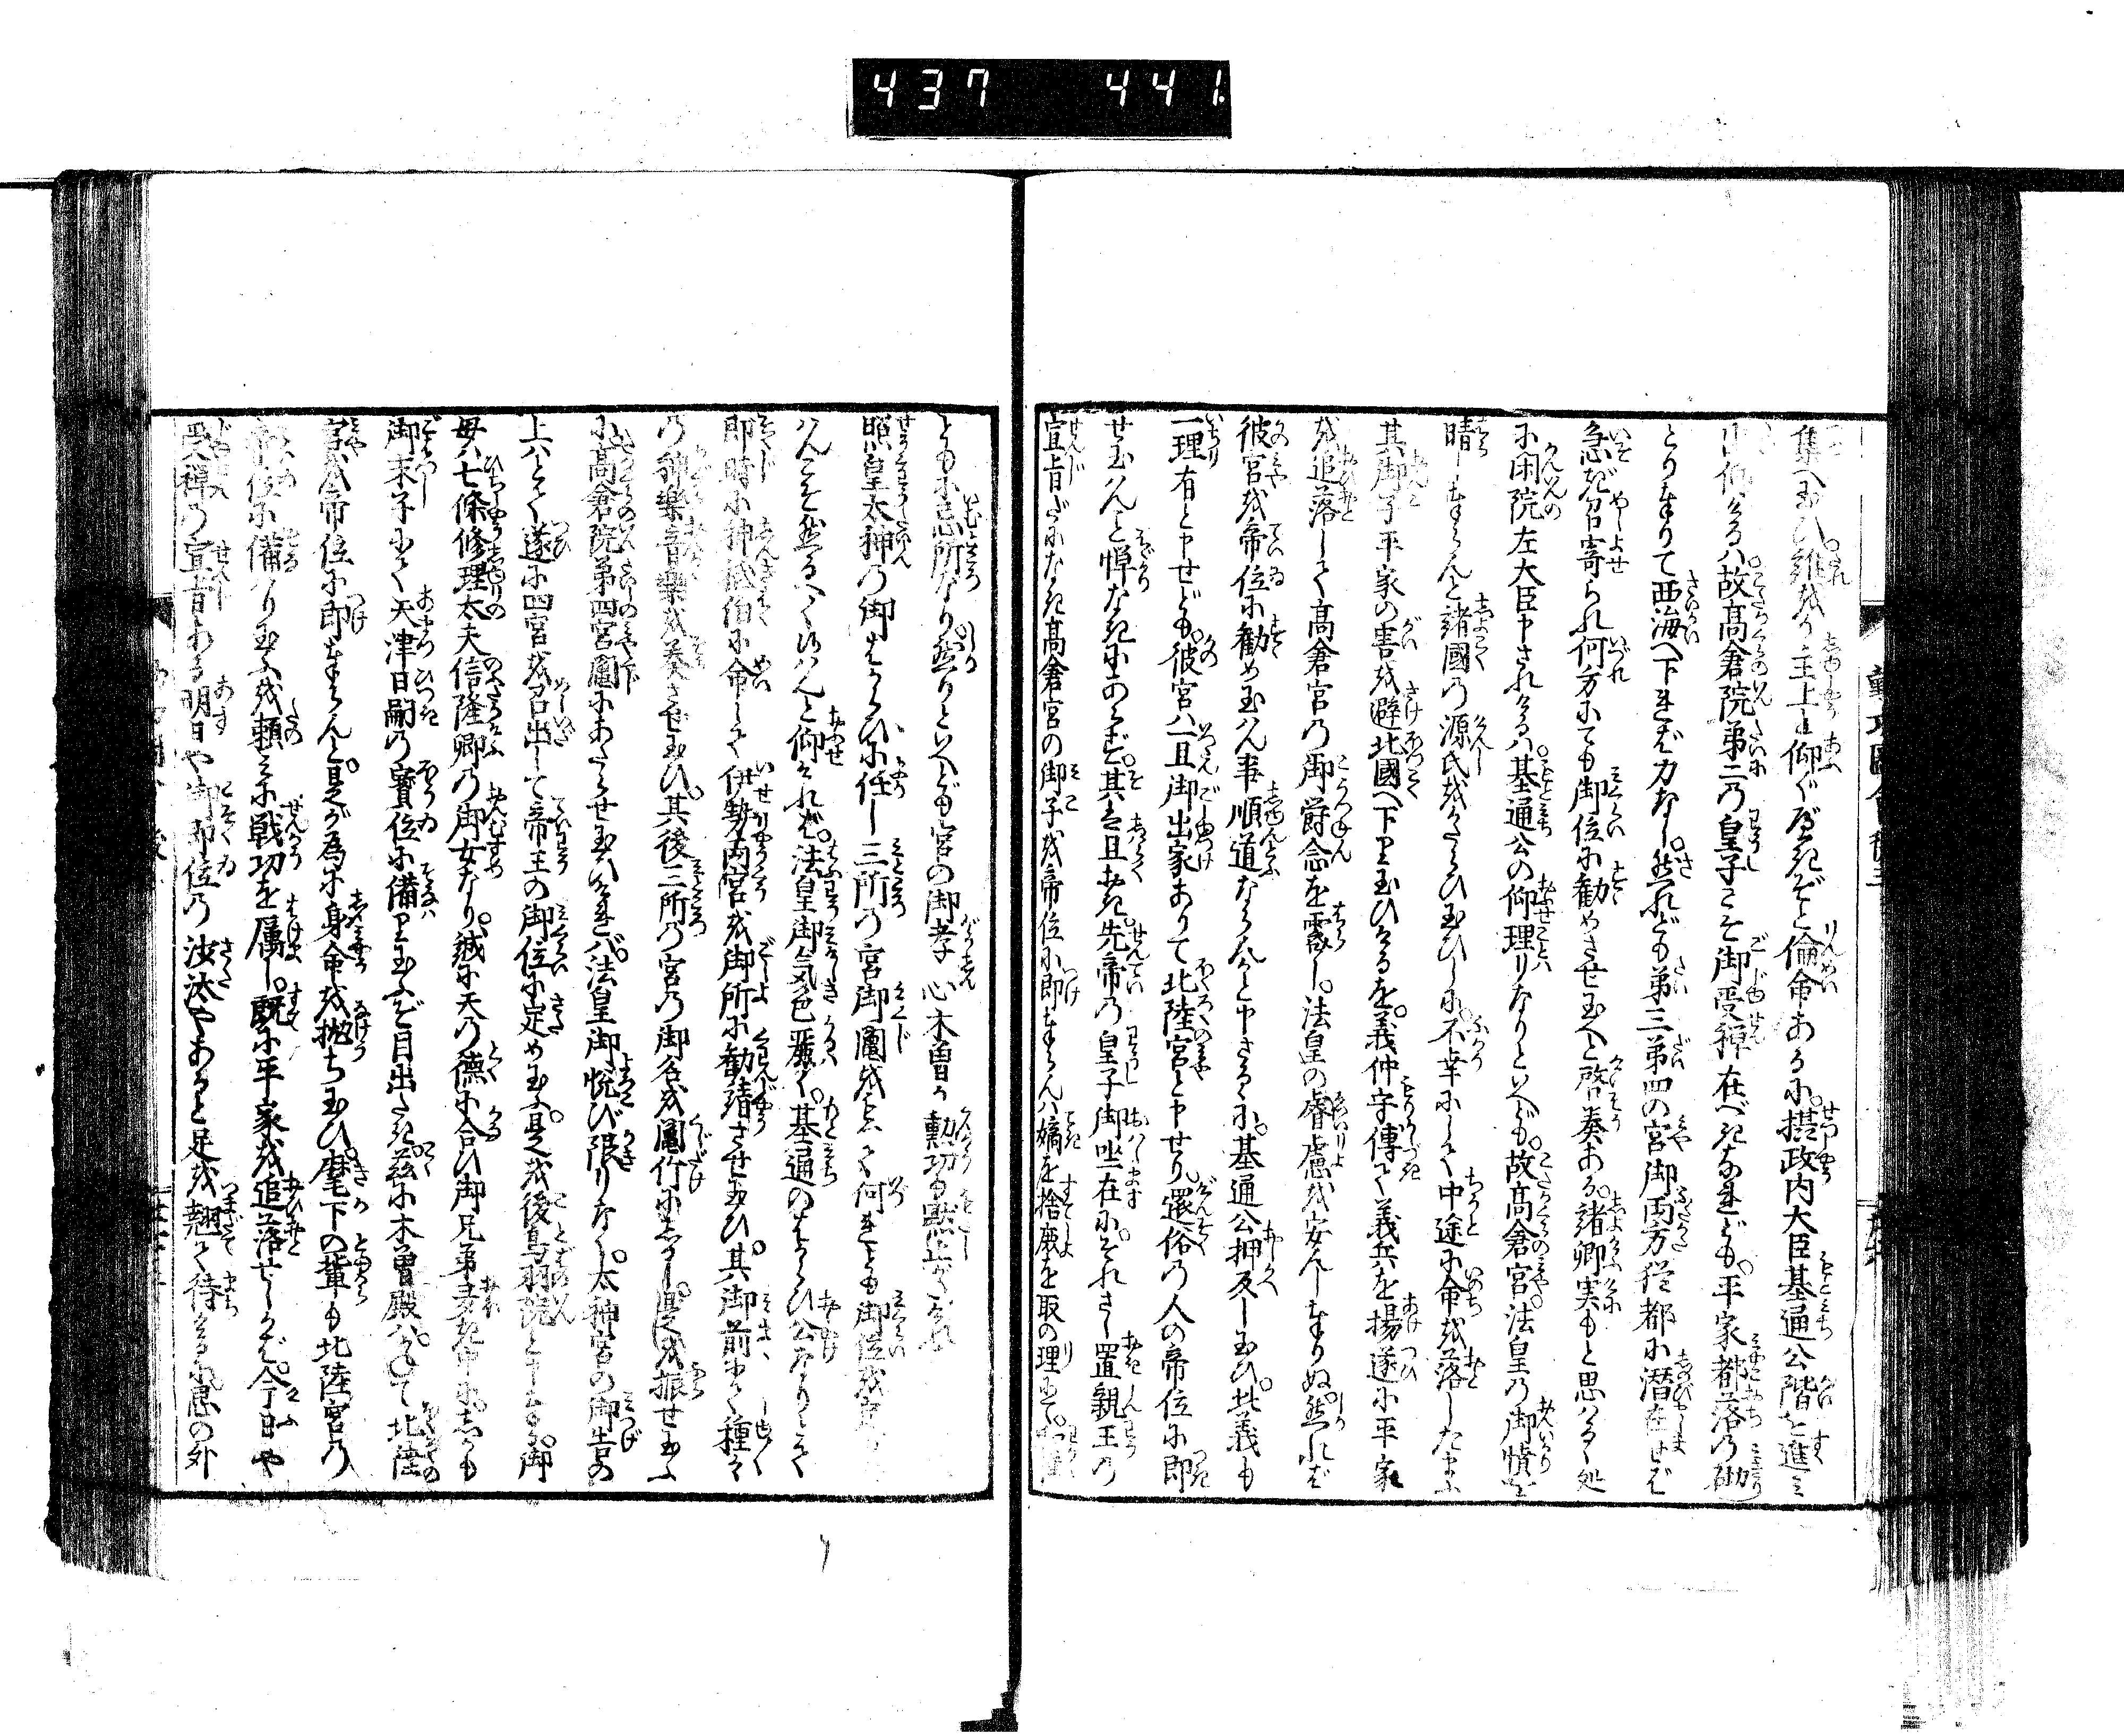 437 441
集へ玉ひ誰をか主上と仰ぐべきぞと倫命あるに。摂政内大臣基通公階を進み
けるハ。故高倉院第二の皇子こそ御受禅在べきなれども。平家都落の砌
とりまゐりて西海へ下ればカなし。然れども第三第四の宮御両方程都に潜在せば
急ぎ召寄られ何方にても御位に勧めさせ玉へと啓奏ある。諸卿実もと思はるゝ処
に閑院左大臣申されけるハ。基通公の仰理りなりといへども。故高倉宮法皇の御憤を
晴しまゐらんと諸國の源氏をかたらひ玉ひしに。不幸にして中途に命を落したまふ
其御子平家の害を避北國へ下り玉ひけるを。義仲守傅て義兵を揚遂に平家
を追落して高倉宮の御爵念を霽し。法皇の睿慮を安んじまゐりぬ。然れば
彼宮を帝位に勧め玉はん事順道ならんと申さるゝに。基通公押反し玉ひ。此義も
一理有と申せども。彼宮ハ一旦御出家ありて北陸宮と申せり。還俗の人の帝位に即
せ玉はんと憚なきにのらず。其ハ且おき。先帝の皇子御坐在に。それさし置親王の
宣旨だになき高倉宮の御子を帝位に即まゐらんハ嫡を捨庶を取の理にて。
ともに忌所なり。然りといへども宮の御孝心木曽が勲功も黙止がたければ
照皇太神の御はからひに任し三所の宮御鬮をとつて何れとも御位を定
はんこそ然るべく候はんと仰ければ。法皇御気色麗く。基通のはからひ公なりとて
即時に神祇伯に命じて伊勢両宮を御所に勧請させ玉ひ。其御前にて種々
の神樂音樂を奏させ玉ひ。其後三所の宮の御名を鬮竹にしるし。是を振せ玉ふ
に高倉院第四宮鬮にあたらせ玉ひければ。法皇御悦び限りなく。太神宮の御告の
上ハとて遂に四宮を召出して帝王の御位に定め玉ふ。是を後鳥羽院と申ける。御
母ハ七條修理太夫信隆卿の御女なり。誠に天の徳に合ひ御兄弟多き中に。しかも
御末子にて天津日嗣の寳位に備り玉ふぞ目出たき。茲に木曽殿ハかねて北陸
宮を帝位に即まゐらんと。是が為に身命を抛ち玉ひ。麾下の輩も北陸宮の
帝位に備り玉ふを頼みに戦功を属し。既に平家を追落せしかば。今日や
受禅の宣旨ある明日や御即位の汝汰やあると足を翹て待けるに。思の外